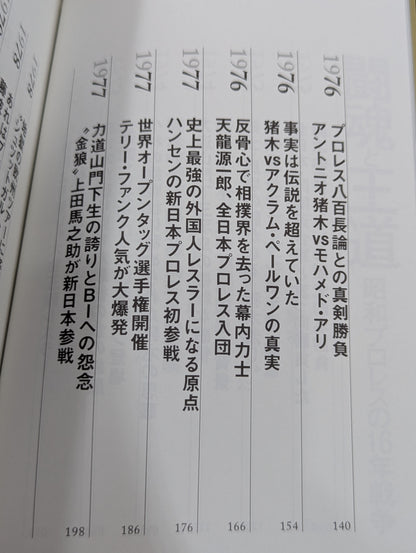 1976
プロレス八百長論との真剣勝負
アントニオ猪木vsモハメド・アリ
140
1976
事実は伝説を超えていた
猪木vsアクラム・ペールワンの真実
154
1976
反骨心で相撲界を去った幕内力士
天龍源一郎、全日本プロレス入団
166
1977
史上最強の外国人レスラーになる原点
ハンセンの新日本プロレス初参戦
176
1977
世界オープンタッグ選手権開催
テリー・ファンク人気が大爆発
186
1977
力道山門下生の誇りとBIへの怨念
“金狼”上田馬之助が新日本参戦
198
1978